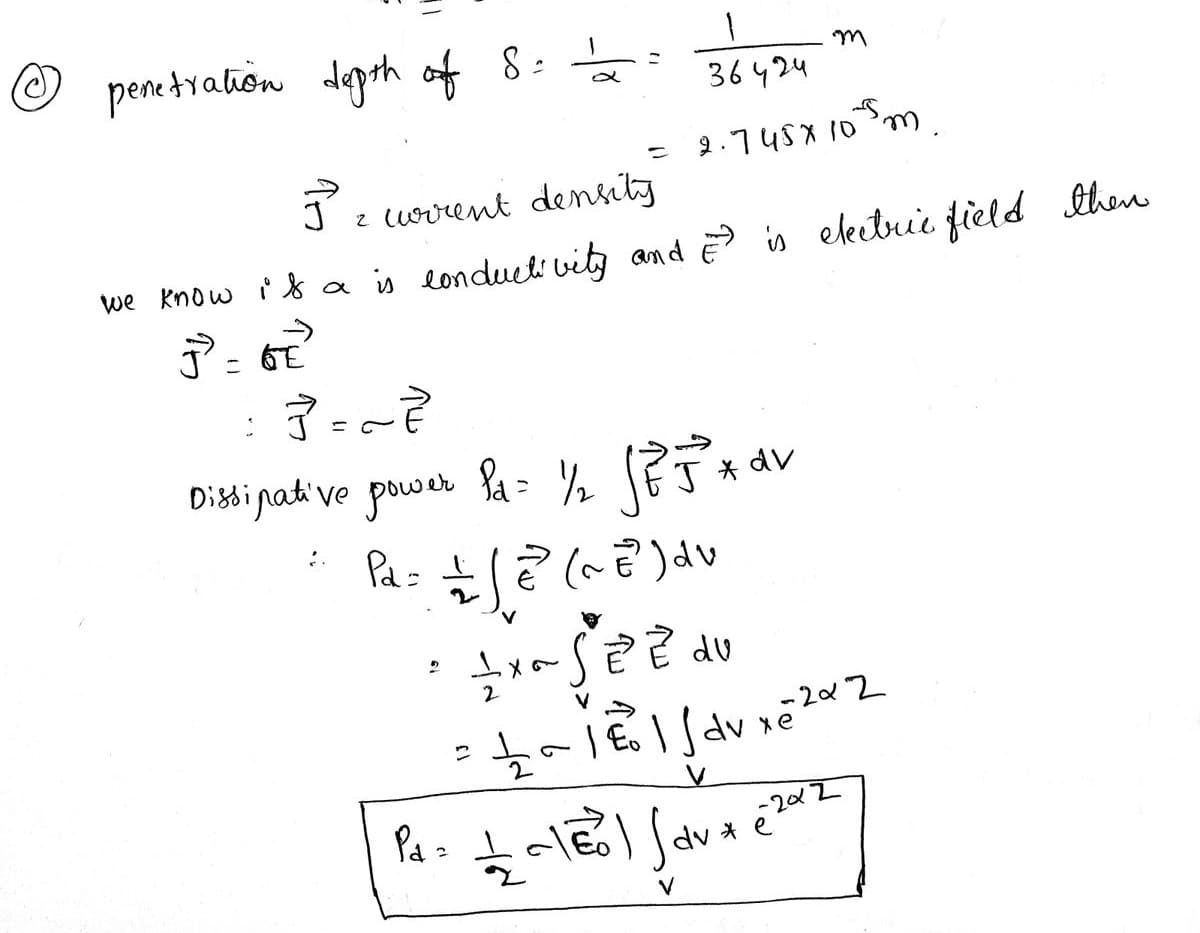 (c) penetration depth of δ = 1/α = 1/36424 m
= 2.745 x 10^-5 m.
J⃗ = current density
we know if a is conductivity and E⃗ is electric field then
J⃗ = σE⃗
: J⃗ = σE⃗
Dissipative power Pd = 1/2 ∫E⃗ J⃗ * dV
∴ Pd = 1/2 ∫V E⃗ (σ E⃗) dv
= 1/2 x σ ∫V E⃗ E⃗ dv
= 1/2 σ |E⃗o| ∫V dv x e^-2αZ
Pd = 1/2 σ |E⃗o| ∫V dv * e^-2αZ